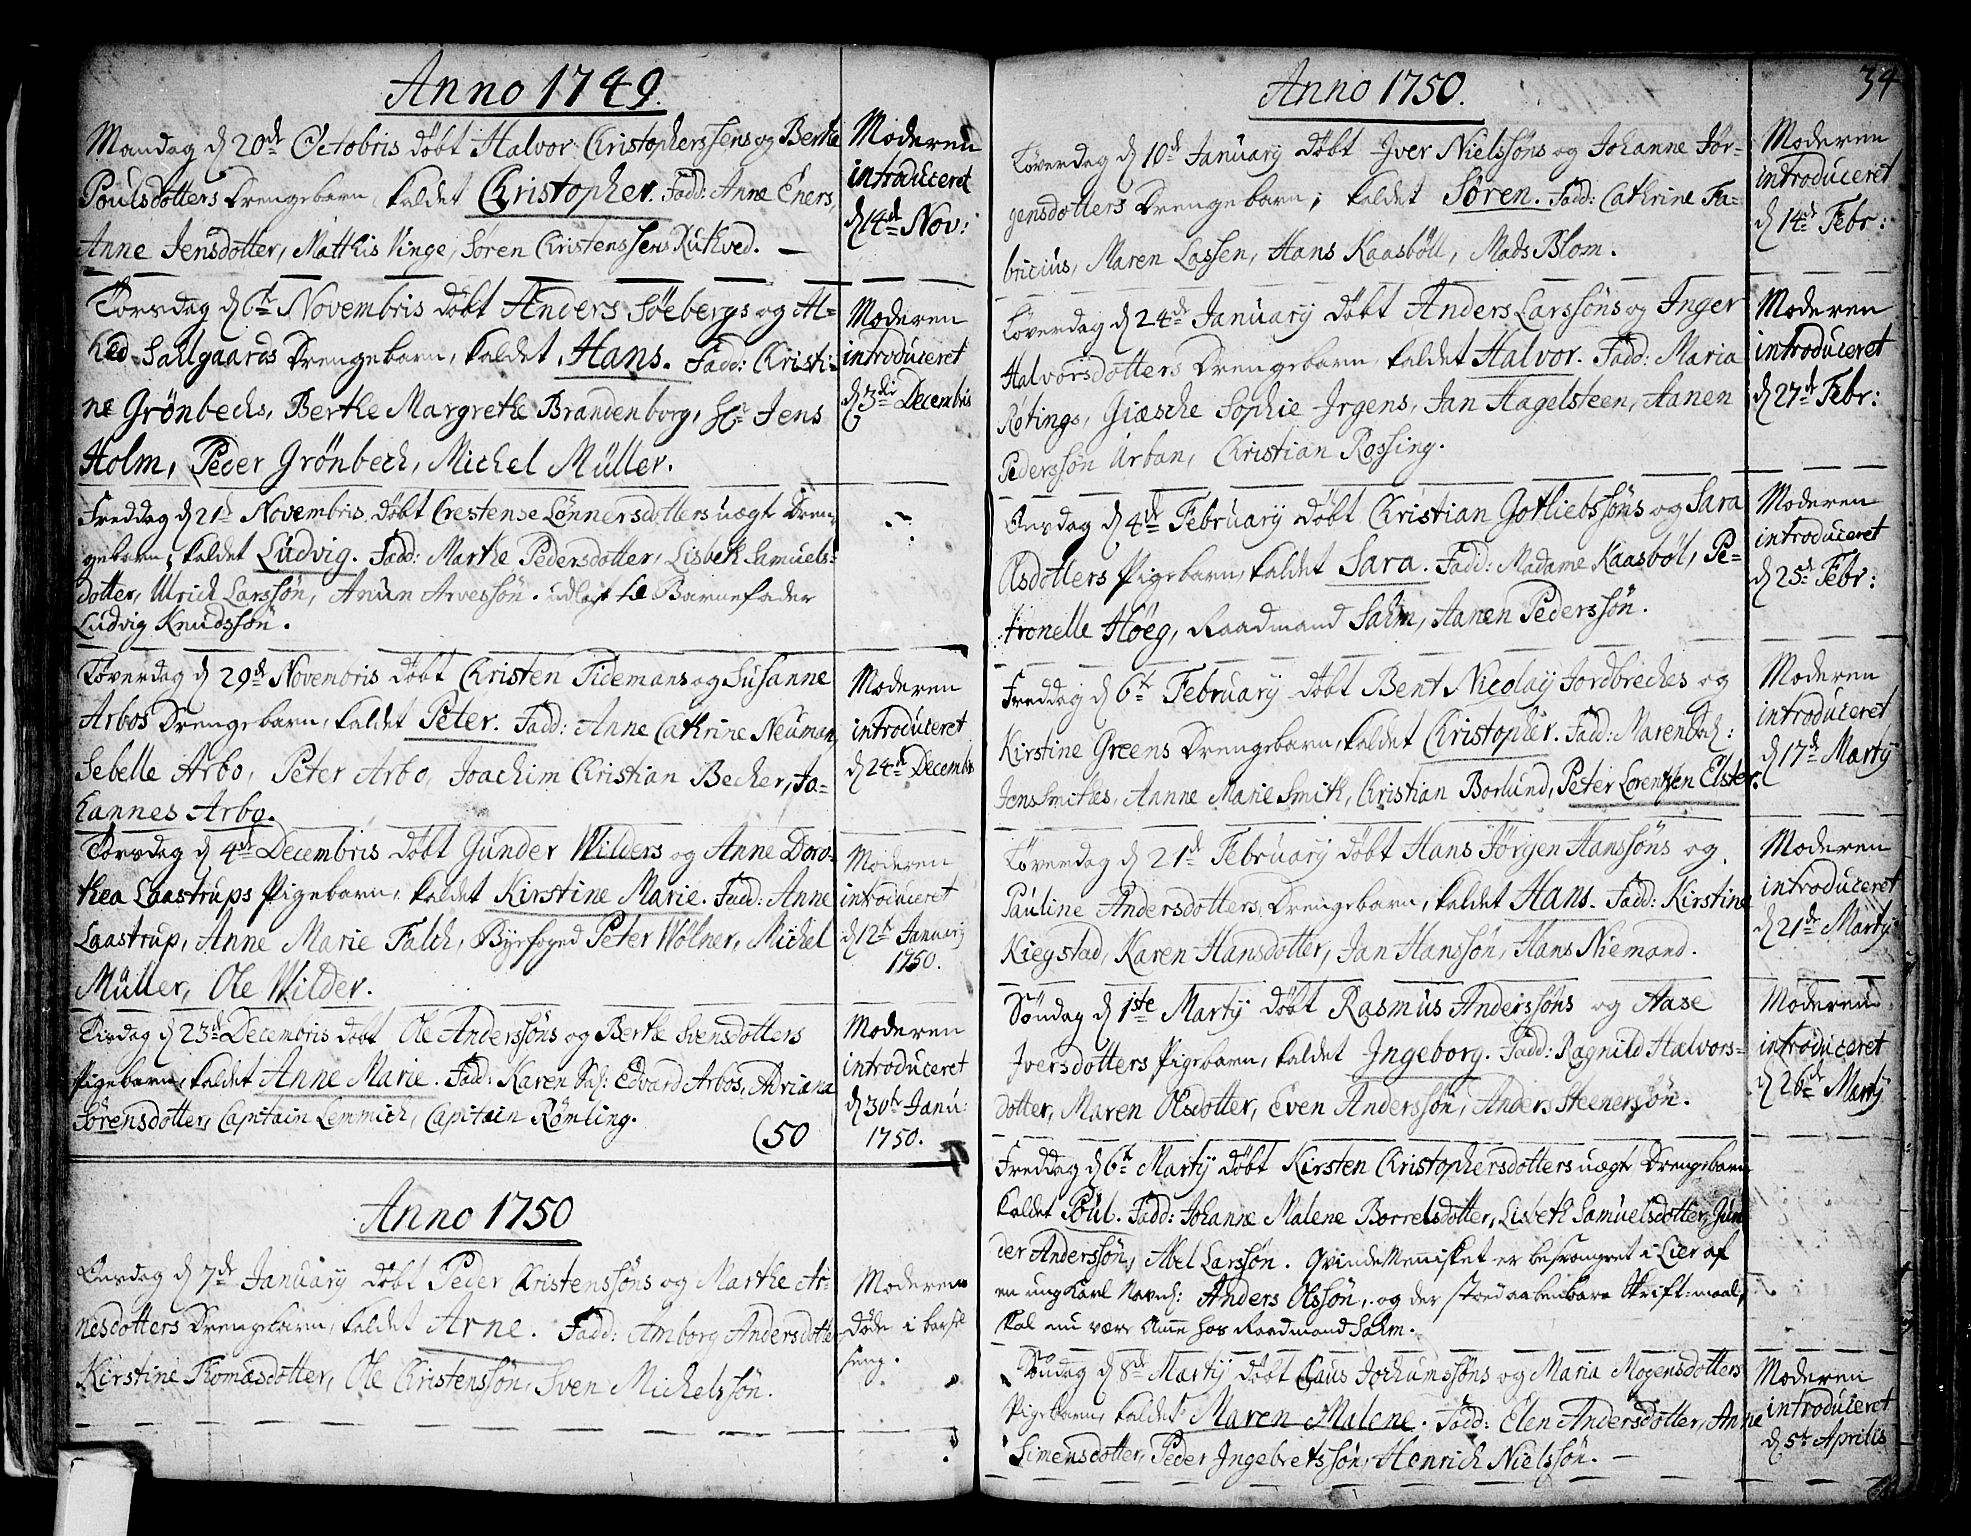 Anno 1749.
Mandag d 20de Octobris döbt Halvor Christopherssens og Berthe
Poulsdotters Drengebarn, kaldet Christopher. Fadd: Anne Eners,
Anne Jensdotter, Matthis Vinge, Sören Christenssens Rukved.
Moderen
introduceret
d 14de Nov:
Torsdag d 6te Novembris döbt Anders Söebergs og Al-
hed Sallgaards Drengebarn, kaldet Hans. Fadd: Christi-
ne Grönbechs, Berthe Margrethe Brandenborg, Hr Jens
Holm, Peder Grönbech, Michel Müller.
Moderen
introduceret
d 3die Decembris
Freddag d 21de Novembris döbt Crestense Lönnersdotters uægte Dren-
gebarn, kaldet Ludvig. Fadd: Marthe Pedersdotter, Lisbeth Samuels-
dotter, Ulrich Larssön, Anun Arvessön. udlagt til Barnefader
Ludvig Knudssön.
Löverdag d 29de Novembris döbt Christen Tidemans og Susanne
Arbos Drengebarn, kaldet Peter. Fadd: Anne Cathrine Neuman,
Sebelle Arbo, Peter Arbo, Joachim Christian Becher, Jo-
hannes Arbo.
Moderen
introduceret
d 24de Decembr
Torsdag d 4de Decembris döbt Gunder Wilders og Anne Doro-
thea Laastrups Pigebarn, kaldet Kirstine Marie. Fadd: Anne
Laastrup, Anne Marie Falch, Byefoged Peter Wölner, Michel
Müller, Ole Wilder.
Moderen
introduceret
d 12te Januarij
1750.
Tisdag d 23de Decembris döbt Ole Anderssöns og Berthe Svensdotters
Pigebarn, kaldet Anne Marie. Fadd: Karen Sal: Edvard Arbos, Adriana
Sörensdotter, Capitain Lemmich, Capitain Römling.
(50
Moderen
introduceret
d 30te Janu:
1750.
Anno 1750
Onsdag d 7de Januarij döbt Peder Christenssöns og Marthe Ar-
nesdotters Drengebarn, kaldet Arne. Fadd: Amborg Andersdotter
Kirstine Thomæsdotter, Ole Christenssön, Sven Michelssön.
Moderen
döde i barsel
seng.
Anno 1750.
34
Löverdag d 10de Januarij döbt Jver Nielssöns og Johanne Jör-
gensdotters Drengebarn, kaldet Sören. Fadd: Cathrine Fa-
bricius, Maren Lassen, Hans Kaasböll, Mads Blom.
Moderen
introduceret
d 14de Febr:
Löverdag d 24de Januarij döbt Anders Larssöns og Inger
Halvorsdotters Drengebarn kaldet Halvor. Fadd: Maria
Rötings, Giæsche Sophie Jrgens, Jan Hagelsteen, Aanen
Pederssön Urban, Christian Rossing.
Moderen
introduceret
d 27de Febr:
Onsdag d 4de Februarij döbt Christian Gotliebssöns og Sara
Olsdotters Pigebarn, kaldet Sara. Fadd: Madame Kaasböl, Pe-
tronelle Höeg, Raadmand Salm, Aanen Pederssön.
Moderen
introduceret
d 25de Febr:
Freddag d 6te Februarij döbt Bent Nicolaij Jordbreches og
Kirstine Greens Drengebarn, kaldet Christopher. Fadd: Maren Sal:
Jens Smithes, Anne Marie Smith, Christian Borlund, Peter Lorentzen Elster.
Moderen
introduceret
d 17de Martij
Löverdag d 21de Februarij döbt Hans Jörgen Hanssöns og
Pauline Andersdotters Drengebarn, kaldet Hans. Fadd: Kirstine
Kiegstad, Karen Hansdotter, Jan Hanssön, Hans Niemand.
Moderen
introduceret
d 21de Martij
Söndag d 1ste Martij döbt Rasmus Anderssöns og Aase
Jversdotters Pigebarn, kaldet Jngeborg. Fadd: Ragnild Halvors-
dotter, Maren Olsdotter, Even Anderssön, Anders Steenerssön.
Moderen
introduceret
d 26de Martij
Freddag d 6te Martij döbt Kirsten Christophersdotters uægte Drengebarn
kaldet Poul. Fadd: Johanne Malene Borrelsdotter, Lisbeth Samuelsdotter, Gun-
der Anderssön, Abel Larssön. Qvinde Mennisket er besvangret i Lier af
en ung Karl Navnl: Anders Olssön, og der stoed aabenbare Skrift-maal,
skal nu være Amme hos Raadmand Salm.
Söndag d 8de Martij döbt Claus Jochumssöns og Maria Mogensdotters
Pigebarn, kaldet Maren Malene. Fadd: Elen Andersdotter, Anne
Simensdotter, Peder Jngebretssön, Henrich Nielssön.
Moderen
introduceret
d 5te Aprilis